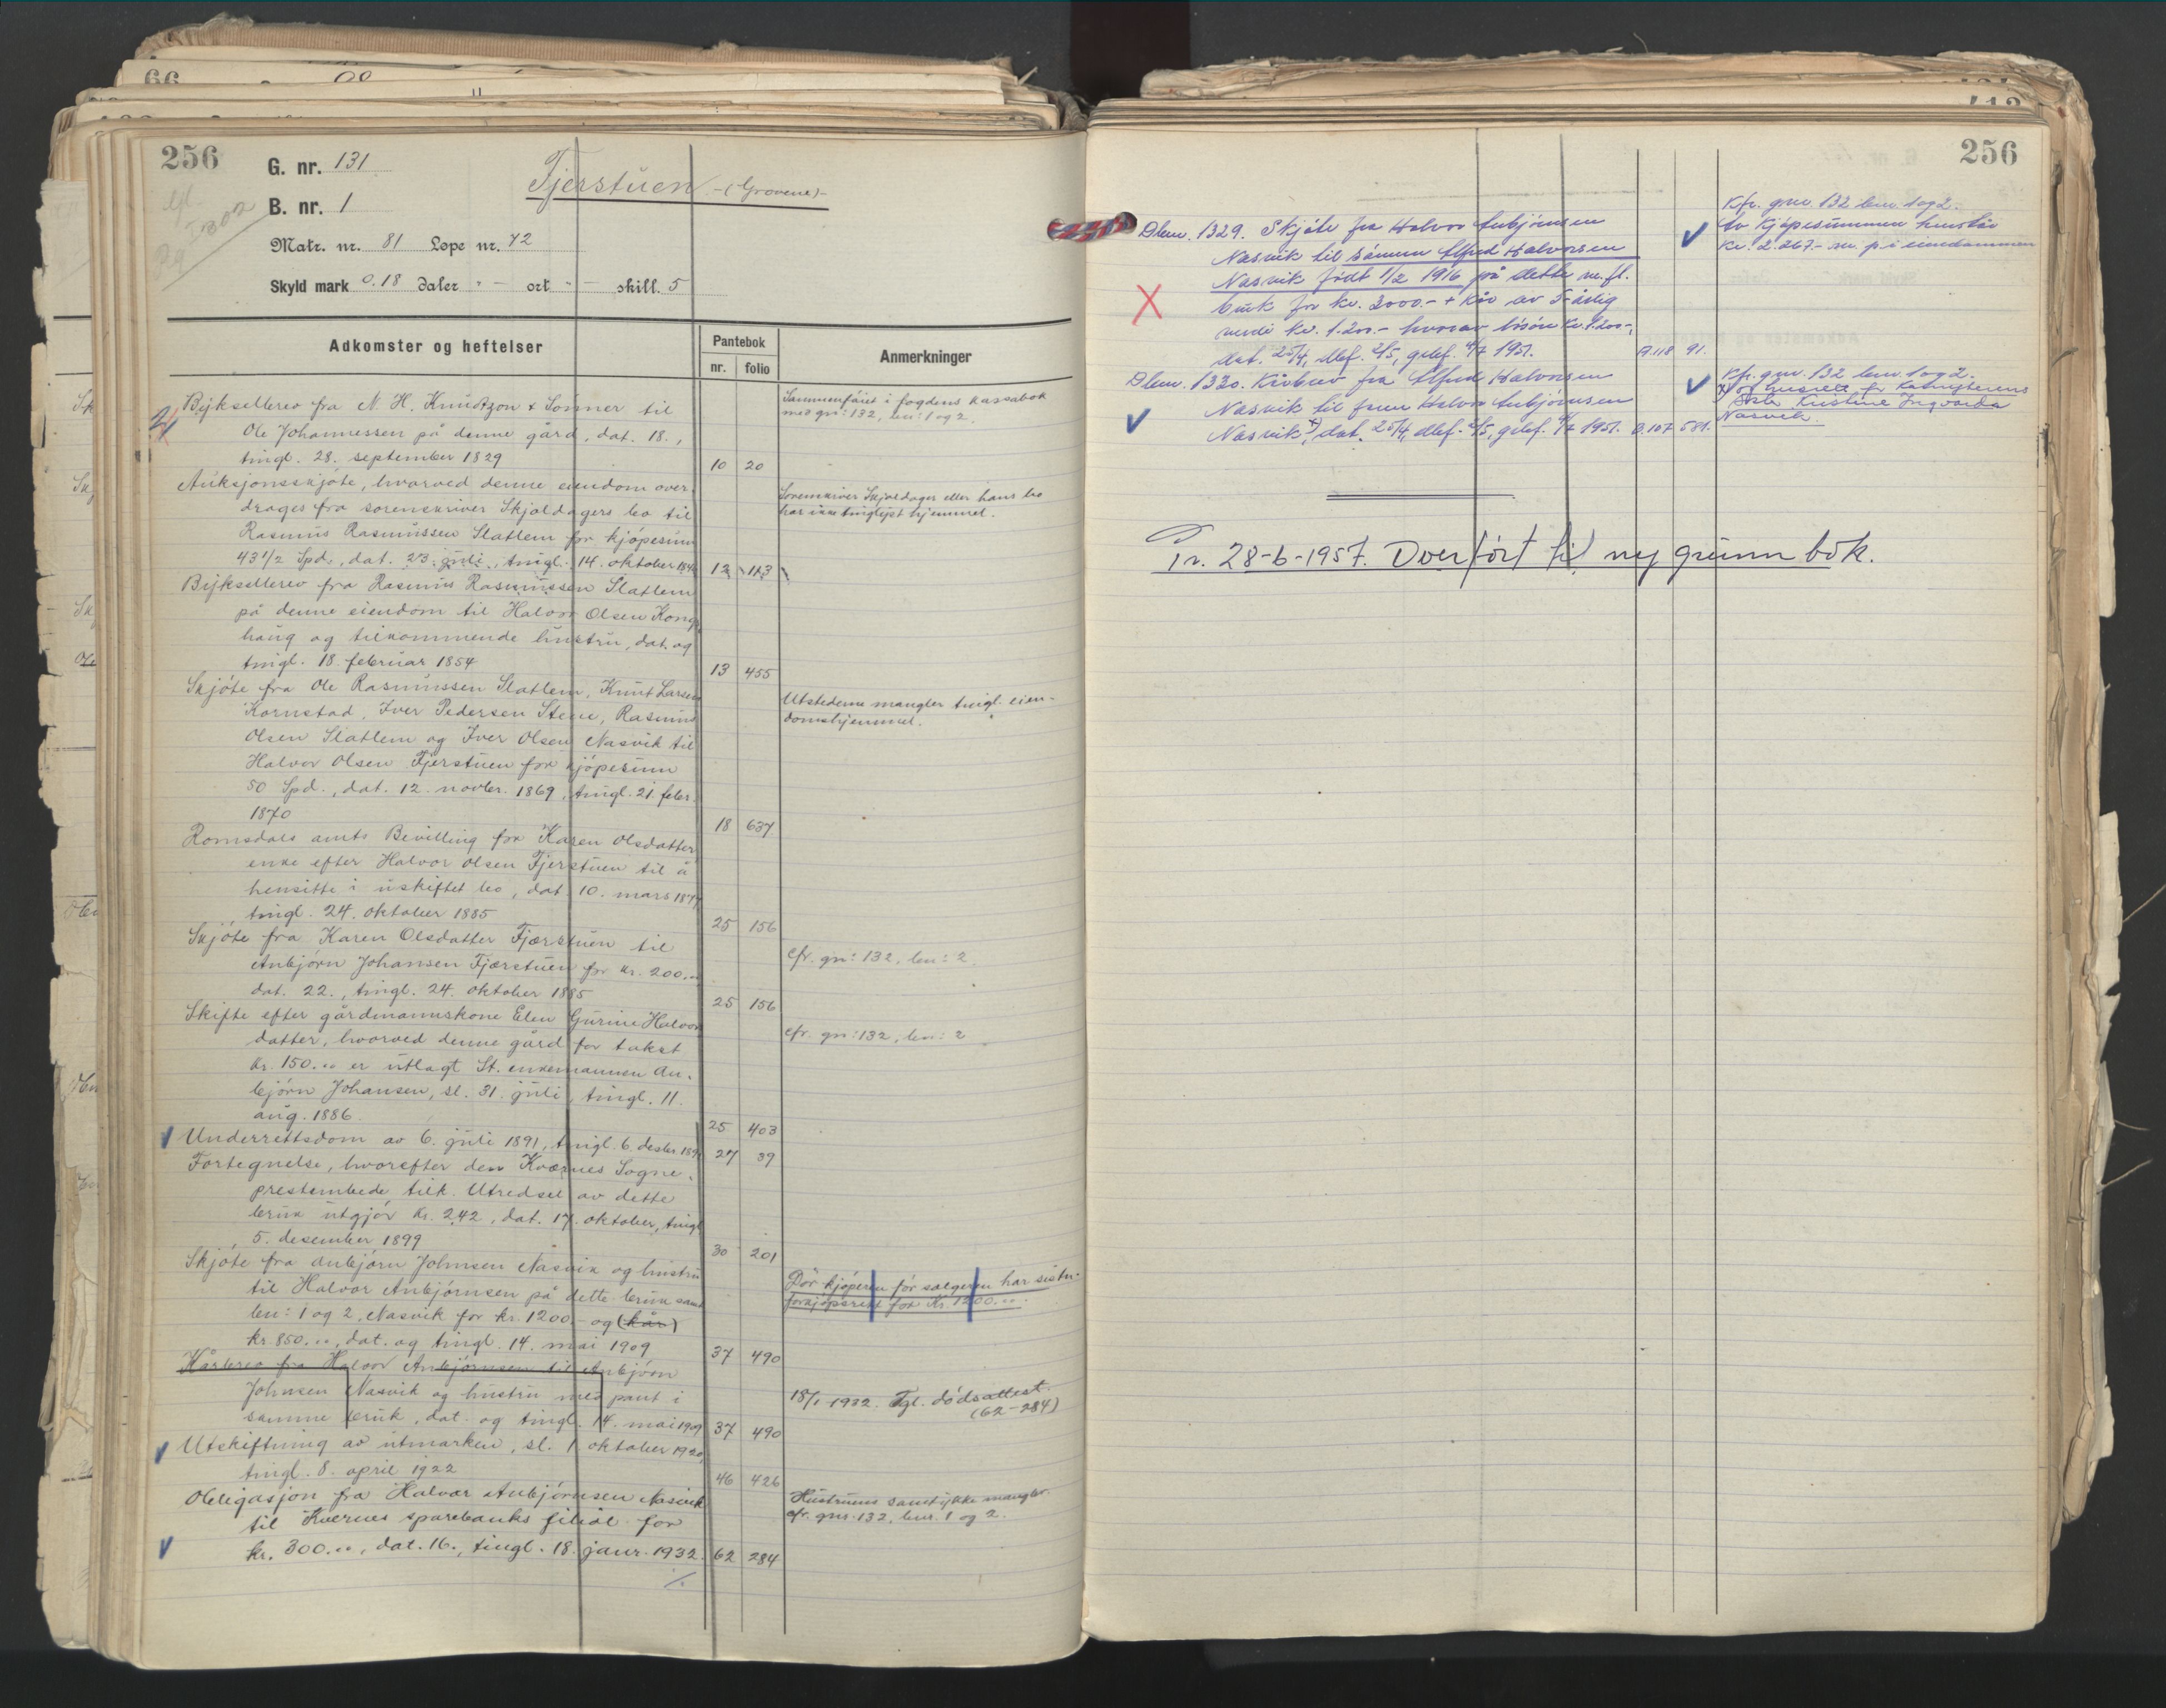 256
G. nr. 131
B. nr. 1
Tjerstuen -(Grovene)-
Matr. nr. 81 Løpe nr. 42
Skyld mark 0.18 daler " - ort " - skill. 5
Adkomster og heftelser
Pantebok
nr. folio
Anmerkninger
Bykselbrev fra N. H. Knudtzon & Sönner til
Ole Johannessen på denne gård, dat. 18.,
tingl. 28. september 1829 10 20
Sammenföiet i fogdens kassabok
med gn: 132, bn: 1 og 2.
Auksjonsskjöte, hvorved denne eiendom over-
drages fra sorenskriver Skjoldagers bo til
Rasmus Rasmussen Slatlem for kjöpesum
43 1/2 Spd., dat. 23. juli, tingl. 14. oktober 12 113
Sorenskriver Skjoldager eller hans bo
har ikke tinglyst hjemmel.
Bykselbrev fra Rasmus Rasmussen Slatlem
på denne eiendom til Halvor Olsen Kongs-
haug og tilkommende hustru, dat. og
tingl. 18. februar 1854 13 455
Skjöte fra Ole Rasmussen Slatlem, Knut Larsen
Kornstad, Iver Pedersen Stene, Rasmus
Olsen Slatlem og Iver Olsen Nasvik til
Halvor Olsen Fjerstuen for kjöpesum
50 Spd., dat. 12. novbr. 1869, tingl. 21. febr.
1870 18 637
Utstederne mangler tingl. eien-
domshjemmel.
Romsdals amts Bevilling for Karen Olsdatter
enke efter Halvor Olsen Fjerstuen til å
hensitte i uskiftet bo, dat. 10. mars
tingl. 24. oktober 1885 25 156
Skjöte fra Karen Olsdatter Fjærstuen til
Anbjörn Johansen Fjærstuen for kr. 200.00
dat. 22., tingl. 24. oktober 1885 25 156
cfr. gn: 132, bn: 2.
Skifte efter gårdmannskone Elen Gurine Halvors-
datter, hvorved denne gård for takst
kr. 150.00 er utlagt St. enkemannen An-
björn Johansen, sl. 31. juli, tingl. 11.
aug. 1886. 25 403
cfr. gn: 132, bn: 2
Underrettsdom av 6. juli 1891, tingl. 6. desbr 1891 27 39
Fortegnelse, hvorefter den Kværnes Sogne-
prestembede tilk. Utredsel av dette
bruk utgjör kr. 2,42, dat. 17. oktober, tingl.
5. desember 1899 30 201
Skjöte fra Anbjörn Johnsen Nasvik og hustru
til Halvor Anbjörnsen på dette bruk samt
bn: 1 og 2, Nasvik for kr. 1200.- og (kår)
kr. 850.00, dat. og tingl. 14. mai 1909 37 490
Dör kjöperen för selgeren har
forkjöpsrett for Kr. 1200.00.
Kårbrev fra Halvor Anbjörnsen til Anbjörn
Johnsen Nasvik og hustru med pant i
samme bruk, dat. og tingl. 14. mai 1909 37 490
18/1-1932. Tgl. dödsattest.
(62-284)
Utskiftning av utmarken, sl. 1 oktober 1920,
tingl. 8. april 1922 46 426
Obligasjon fra Halvor Anbjörnsen Nasvik
til Kvernes sparebanks filial for
kr. 300.00, dat. 16., tingl. 18. janr. 1932. 62 284
Hustruens samtykke mangler.
cfr. gnr. 132, bnr. 1 og 2.
./.
256
Dbnr. 1329. Skjöte fra Halvor Anbjörnsen
Nasvik til sönnen Alfred Halvorsen
Nasvik födt 1/2 1916 på dette m. fl.
bruk for kr. 3000.- + kår av 5-årlig
verdi kr. 1.200.- hvorav lösöre kr. 1.200-,
dat. 25/4, dbf. 2/5, gebf. 4/7 1951. A.118 91.
Kfr. gnr. 132 bnr. 1 og 2.
Av kjöpesummen henstår
kr. 2.267.- m. p. i eiendommen
Dbnr. 1330. Kårbrev fra Alfred Halvorsen
Nasvik til faren Halvor Anbjörnsen
Nasvik x), dat. 25/4, dbf. 2/5, gebf. 4/7 1951. B.107 581.
Kfr. gnr. 132 bnr. 1 og 2.
x) og hustru
Kristine Ingvarda
Nasvik.
Pr. 28-6-1957. Overfört til ny grunnbok.